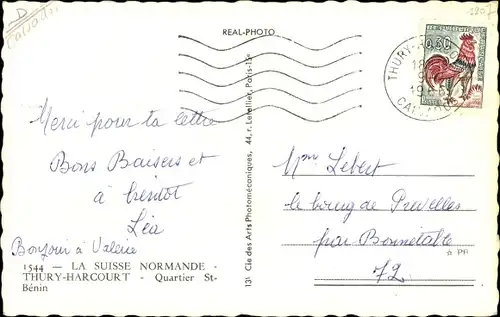 D
Calvados
1207
REAL-PHOTO
0,30
THURY-HARCOURT
18
CALVADOS
Merci pour ta lettre
Bons Baisers et
à bientôt
Léa
Bonjour à Valérie
1544 — LA SUISSE NORMANDE -
THURY-HARCOURT - Quartier St-
Bénin
13 Cie des Arts Photomécaniques, 44, r. Letellier, Paris-15e
Mme Lebert
le bourg de Prévelles
par Bonnétable
72